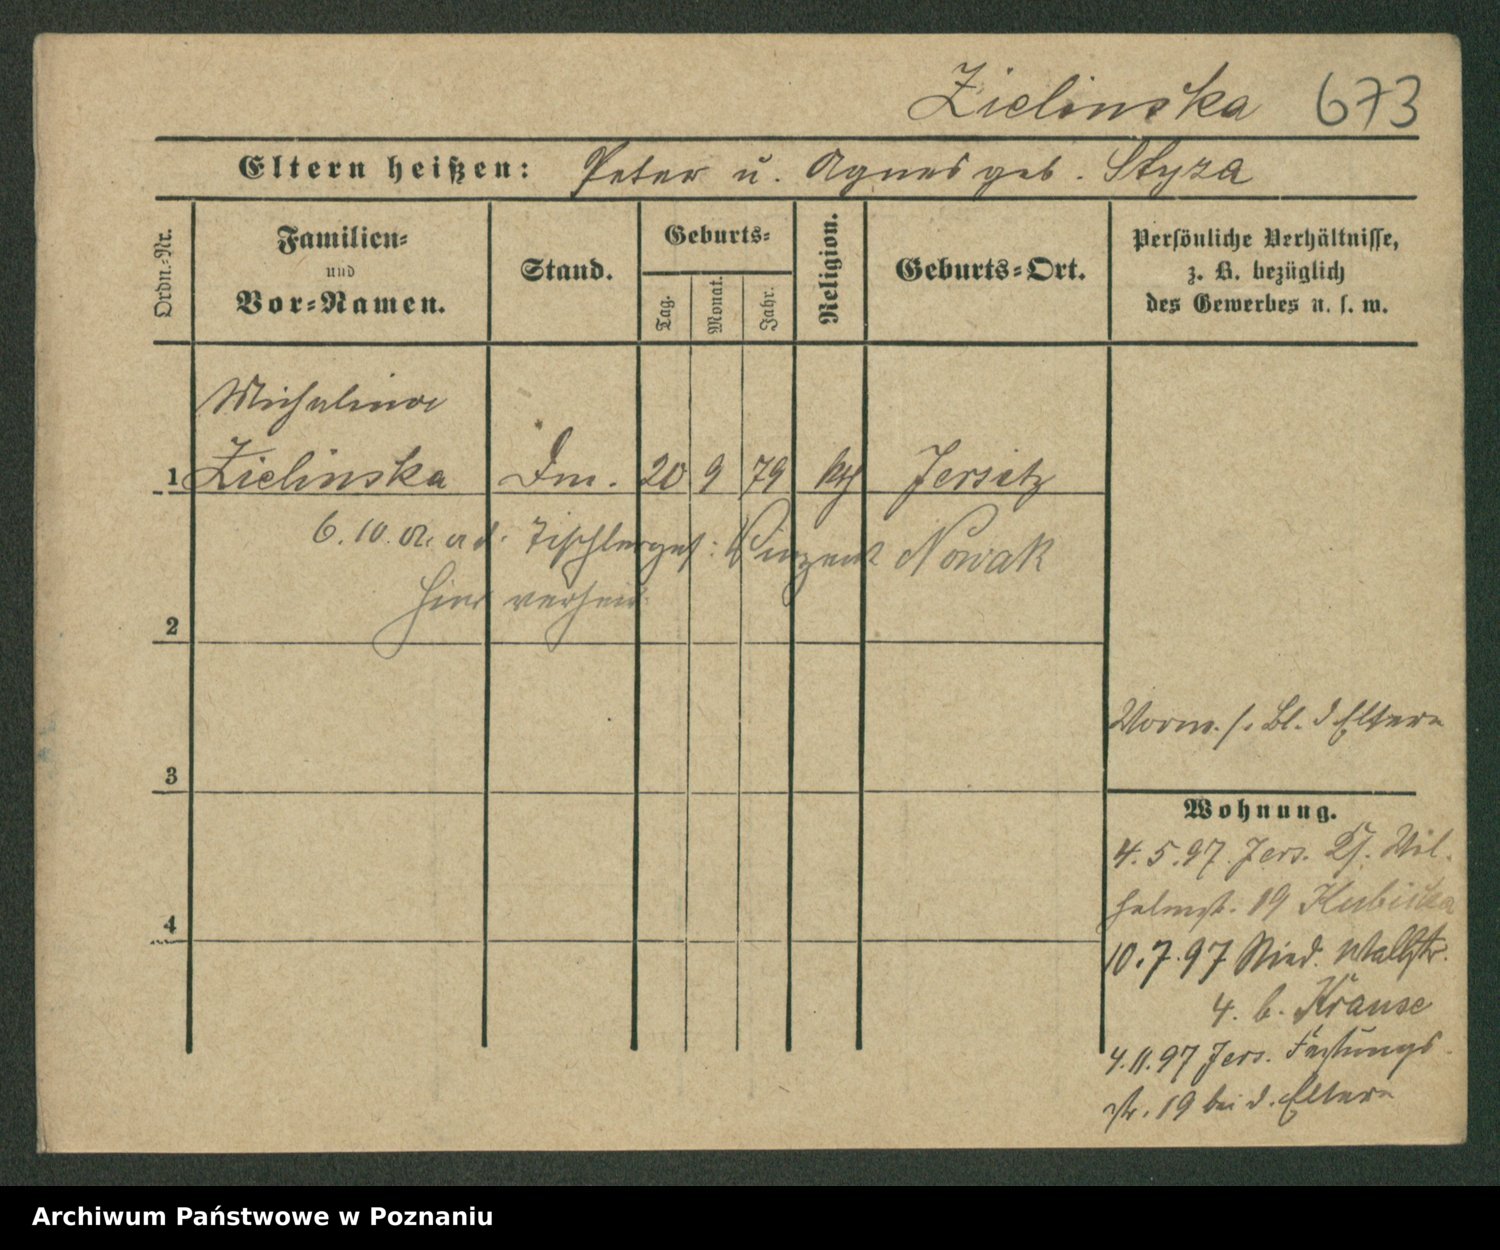 Zielinska 673
Eltern heißen: Peter u. Agnes geb. Styza
Ordn.-Nr.
Familien-
und
Vor-Namen.
Stand.
Geburts-
Tag.
Monat.
Jahr.
Religion.
Geburts-Ort.
Persönliche Verhältnisse,
z. B. bezüglich
des Gewerbes u. s. w.
Michalina
1 Zielinska Dm. 20 9 79 kth Jersitz
6.10. Tischlerges: Vinzent Nowak
hier verheir.
2
3
4
Vorm. s. Bl. d Eltern
Wohnung.
4.5.97. Jers. Wil-
helmst. 19 Kubicka
10.7.97 Nied. Wallstr.
4. b. Krause
4.11.97 Jers. Festungs-
str. 19 bei d. Eltern
Archiwum Państwowe w Poznaniu